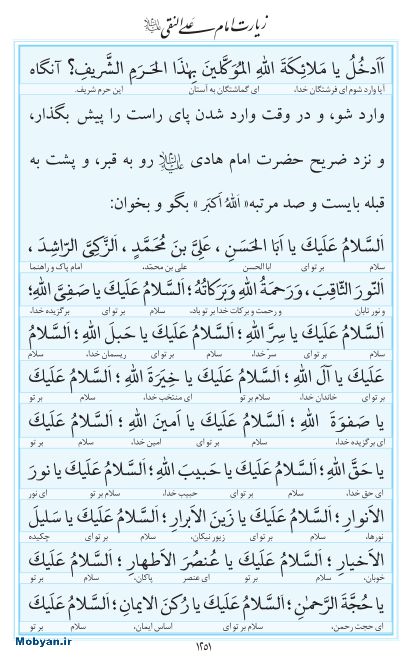 زیارت امام علی النقی علیه‌السلام
أَأَدخُلُ یا مَلائِکَةَ اللهِ المُوَکَّلینَ بِهٰذَا الحَرَمِ الشَّریفِ؟ آنگاه
آیا وارد شوم ای فرشتگان خدا، ای گماشتگان به آستان این حرم شریف.
وارد شو، و در وقت وارد شدن پای راست را پیش بگذار،
و نزد ضریح حضرت امام هادی علیه‌السلام رو به قبر، و پشت به
قبله بایست و صد مرتبه «اَللهُ اَکبَر» بگو و بخوان:
اَلسَّلامُ عَلَیكَ یا اَبَا الحَسَنِ، عَلِیَّ بنَ مُحَمَّدٍ، اَلزَّکِیَّ الرّاشِدَ،
سلام بر تو ای ابا الحسن علی بن محمد، امام پاک و راهنما
اَلنّورَ الثّاقِبَ، وَرَحمَةُ اللهِ وَبَرَکاتُهُ؛ اَلسَّلامُ عَلَیكَ یا صَفِیَّ اللهِ؛
و نور تابان و رحمت و برکات خدا بر تو باد، سلام بر تو ای برگزیده خدا،
اَلسَّلامُ عَلَیكَ یا سِرَّ اللهِ؛ اَلسَّلامُ عَلَیكَ یا حَبلَ اللهِ؛ اَلسَّلامُ
سلام بر تو ای سرّ خدا، سلام بر تو ای ریسمان خدا، سلام
عَلَیكَ یا آلَ اللهِ؛ اَلسَّلامُ عَلَیكَ یا خِیَرَةَ اللهِ؛ اَلسَّلامُ عَلَیكَ
بر تو ای خاندان خدا، سلام بر تو ای منتخب خدا، سلام بر تو
یا صَفوَةَ اللهِ؛ اَلسَّلامُ عَلَیكَ یا اَمینَ اللهِ؛ اَلسَّلامُ عَلَیكَ
ای برگزیده خدا، سلام بر تو ای امین خدا، سلام بر تو
یا حَقَّ اللهِ؛ اَلسَّلامُ عَلَیكَ یا حَبیبَ اللهِ؛ اَلسَّلامُ عَلَیكَ یا نورَ
ای حق خدا، سلام بر تو ای حبیب خدا، سلام بر تو ای نور
الاَنوارِ؛ اَلسَّلامُ عَلَیكَ یا زَینَ الاَبرارِ؛ اَلسَّلامُ عَلَیكَ یا سَلیلَ
نورها، سلام بر تو ای زیور نیکان، سلام بر تو ای چکیده
الاَخیارِ؛ اَلسَّلامُ عَلَیكَ یا عُنصُرَ الاَطهارِ؛ اَلسَّلامُ عَلَیكَ
خوبان، سلام بر تو ای عنصر پاکان، سلام بر تو
یا حُجَّةَ الرَّحمٰنِ؛ اَلسَّلامُ عَلَیكَ یا رُکنَ الایمانِ؛ اَلسَّلامُ عَلَیكَ
ای حجت رحمن، سلام بر تو ای اساس ایمان، سلام بر تو
۱۲۵۱
Mobyan.ir